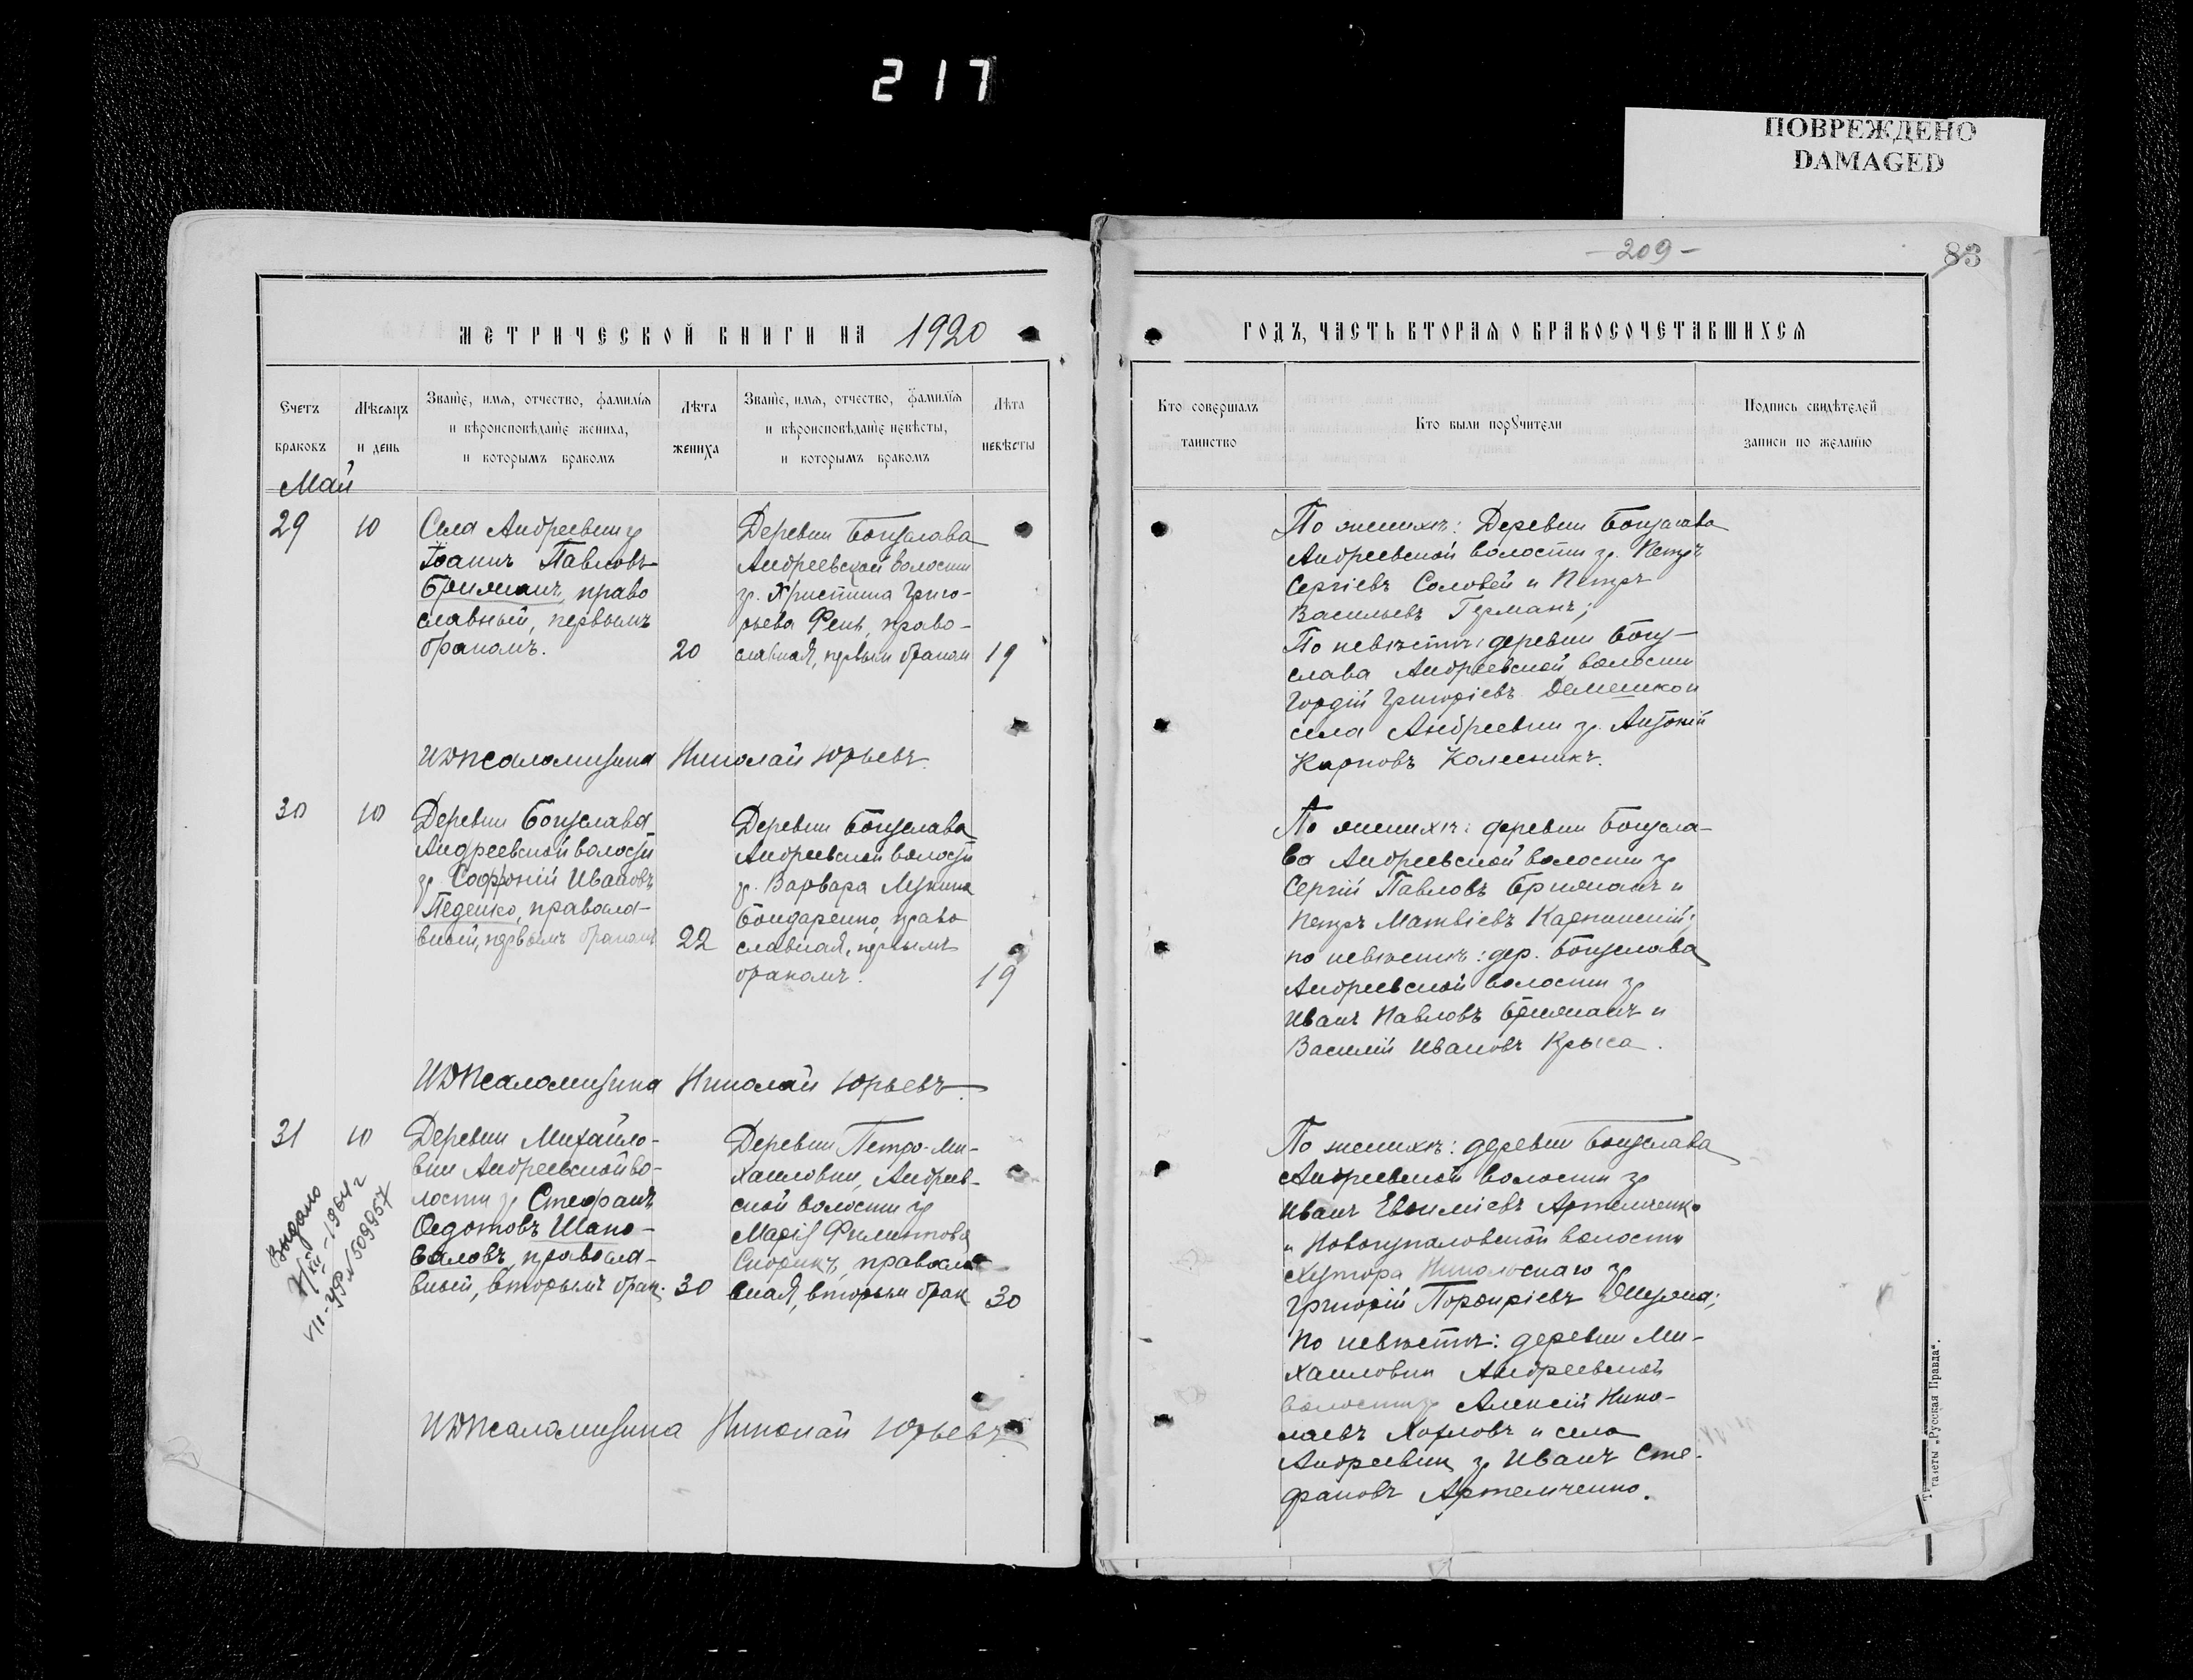 217
ПОВРЕЖДЕНО
DAMAGED
-209-
83
МЕТРИЧЕСКОЙ КНИГИ НА 1920
ГОДЪ, ЧАСТЬ ВТОРАЯ О БРАКОСОЧЕТАВШИХСЯ
Счетъ
браковъ
Мѣсяцъ
и день
Званіе, имя, отчество, фамилія
и вѣроисповѣданіе жениха,
и которымъ бракомъ
Лѣта
жениха
Званіе, имя, отчество, фамилія
и вѣроисповѣданіе невѣсты,
и которымъ бракомъ
Лѣта
невѣсты
Кто совершалъ
таинство
Кто были поручители
Подпись свидѣтелей
записи по желанію
Май
29
10
Села Андреевки гр
Іоаннъ Павловъ
Брижанъ, право
славный, первымъ
бракомъ.
20
Деревни Богуслава
Андреевской волости
гр. Христина Григо-
рьева Фень, право-
славная, первым браком
19
По женихѣ: Деревни Богуслава
Андреевской волости гр. Петръ
Сергіевъ Соловей и Петръ
Васильевъ Германъ;
По невѣстѣ: деревни Богу-
слава Андреевской волости
Гордій Григоріевъ Демешко и
села Андреевки гр. Антоній
Карповъ Колесникъ.
Николай Юрьевъ.
30
10
Деревни Богуслава
Андреевской волости
гр. Софроній Ивановъ
Педенко, правосла-
вный, первымъ бракомъ
22
Деревни Богуслава
Андреевской волости
гр. Варвара Лукина
Бондаренко, право
славная, первымъ
бракомъ.
19
По женихѣ: деревни Богусла-
ва Андреевской волости гр
Сергій Павловъ Брижанъ и
Петръ Матвіевъ Карпинскій;
по невѣстѣ: дер. Богуслава
Андреевской волости гр
Иванъ Павловъ Брижанъ и
Василій Ивановъ Крыса.
Николай Юрьевъ.
31
10
Деревни Михайло-
вки Андреевской во-
лости гр Стефанъ
Федотовъ Шапо-
валовъ, правосла-
вный, вторымъ брак.
30
Деревни Петро-Ми-
хайловки, Андреев-
ской волости гр
Марія Филиппова
Скорикъ, правосла
вная, вторым брак
30
По женихѣ: деревни Богуслава
Андреевской волости гр
Иванъ Евфиміевъ Артемченко
и Новогупаловской волости
Хутора гр
Григорій Порфиріевъ
по невѣстѣ: деревни Ми-
хайловки Андреевской
волости гр Алексій Нико-
лаевъ Козловъ и села
Андреевки гр Иванъ Сте-
фановъ Артемченко.
Николай Юрьевъ
Выдано
XII-1964 г
509957
газеты „Русская Правда“.